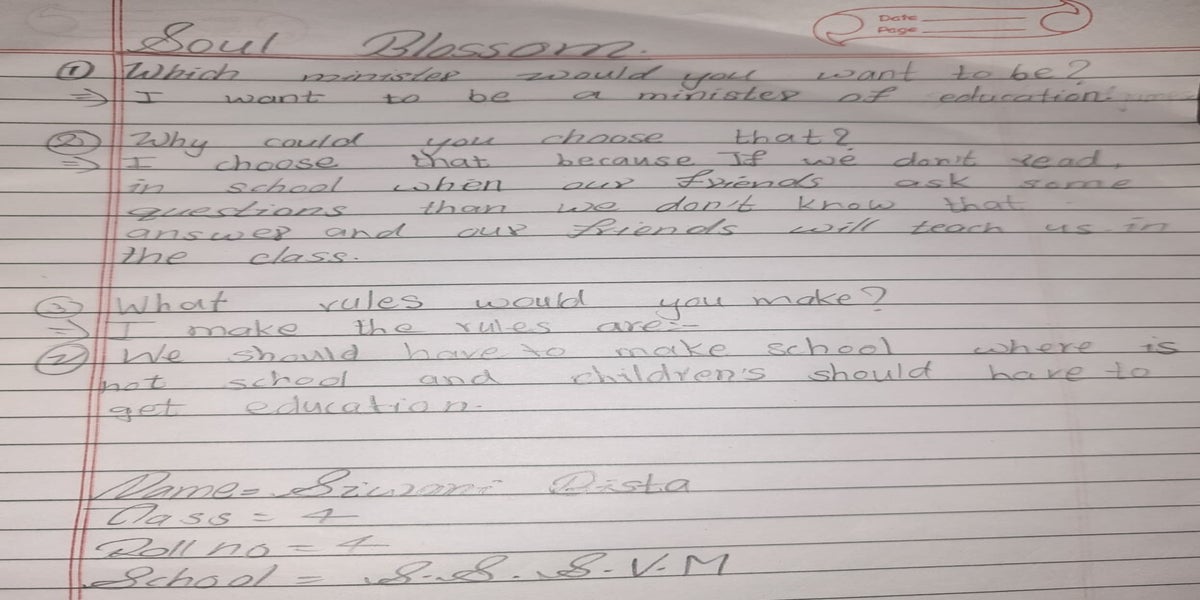 Date
Page
Soul Blossom.
① Which minister would you want to be?
⇒ I want to be a minister of education.
② Why could you choose that?
⇒ I choose that because If we don't read,
in school when our friends ask some
questions than we don't know that
answer and our friends will teach us in
the class.
③ What rules would you make?
⇒ I make the rules are:-
② We should have to make school where is
not school and children's should have to
get education.
Name = 
Class = 4
Roll no = 4
School = S.S.S.V.M